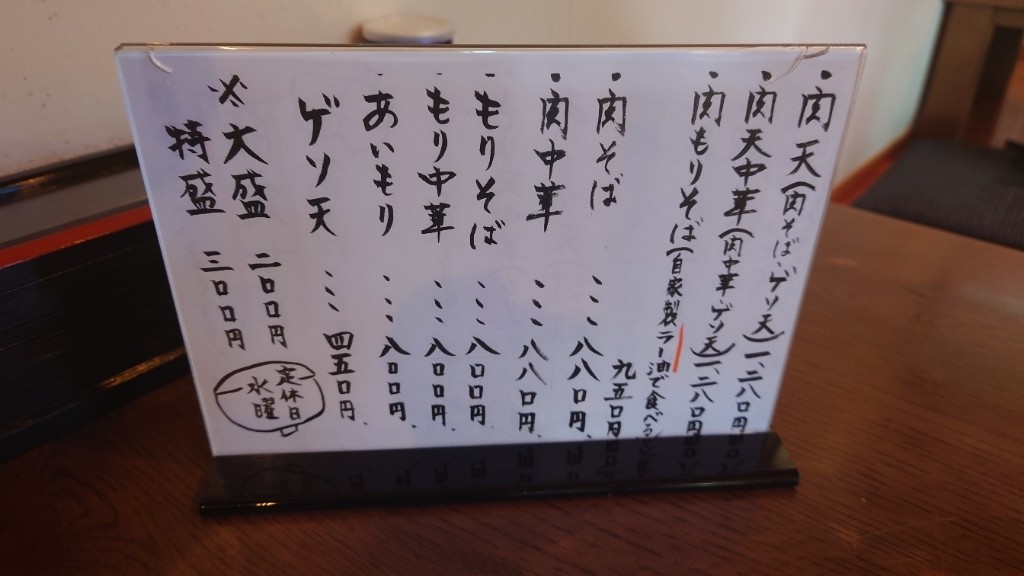 ・肉天(肉そば、ゲソ天)一、二八〇円
・肉天中華(肉中華、ゲソ天)一、二八〇円
・肉もりそば(自家製ラー油で食べる
九五〇円
・肉そば ・・・ 八八〇円、
・肉中華 ・・・ 八八〇円、
・もりそば ・・・ 八〇〇円
・もり中華 ・・・ 八〇〇円、
・あいもり ・・・ 八〇〇円、
ゲソ天 ・・・ 四五〇円、
※大盛 二〇〇円
特盛 三〇〇円
定休日
水曜